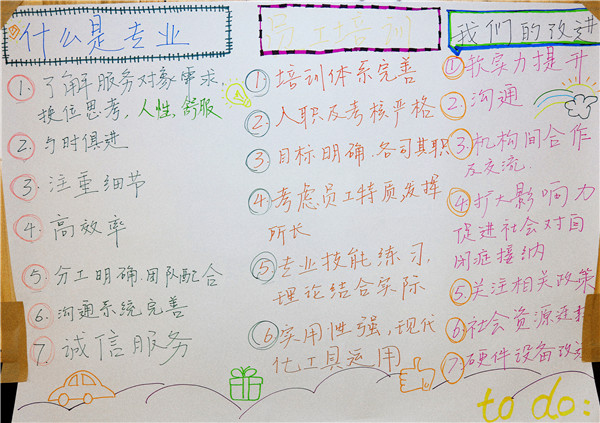 什么是专业
1. 了解服务对象需求.
换位思考, 人性, 舒服
2. 与时俱进
3. 注重细节
4. 高效率
5. 分工明确.团队配合
6. 沟通系统完善
7. 诚信服务
员工培训
1. 培训体系完善
2. 入职及考核严格
3. 目标明确.各司其职
4. 考虑员工特质,发挥
所长
5. 专业技能练习,
理论结合实际
6. 实用性强,现代
化工具运用
我们的改进
1. 软实力提升
2. 沟通
3. 机构间合作
及交流.
4. 扩大影响力
促进社会对自
闭症接纳
5. 关注相关政策
6. 社会资源连接
7. 硬件设备改进
to do: